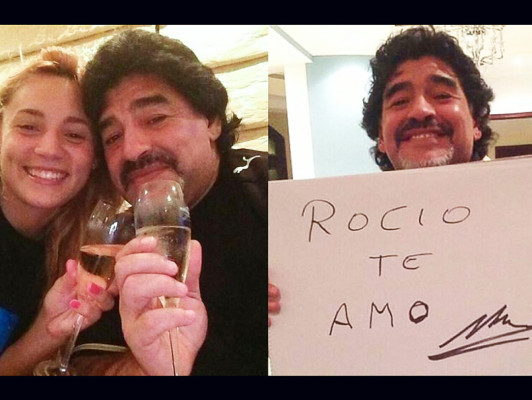 ROCIO
TE
AMO